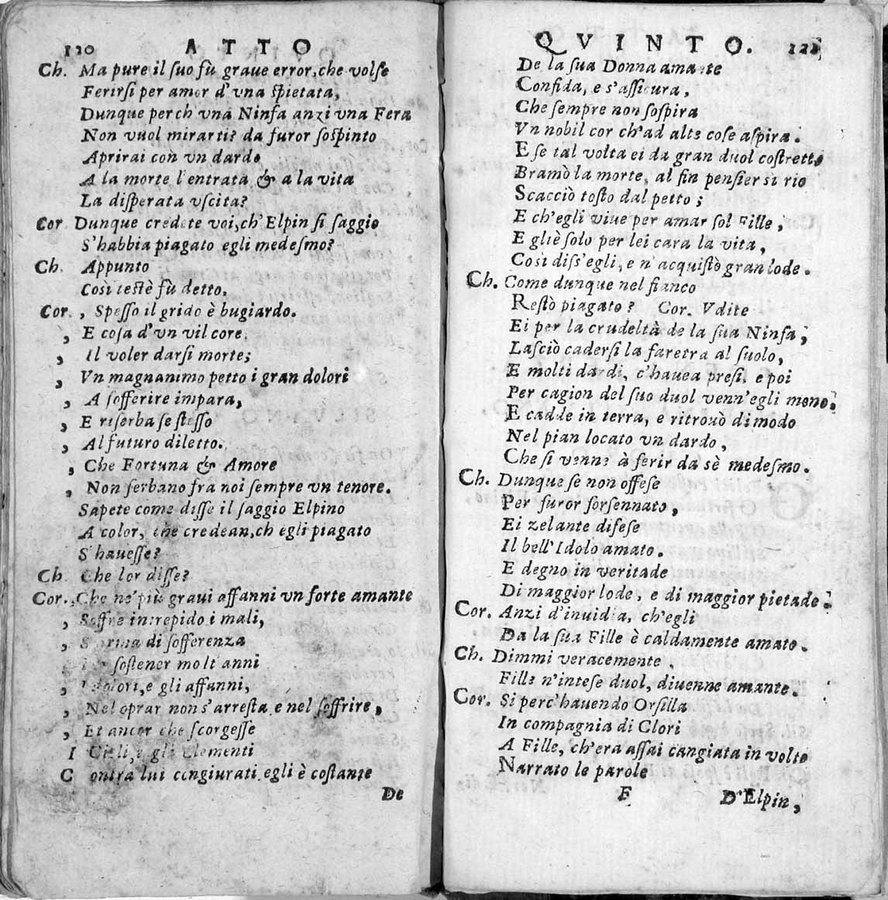 120 ATTO
Ch. Ma pure il suo fù graue error, che volse
Ferirsi per amor d'vna spietata,
Dunque perch vnà Ninfa anzi vna Fera
Non vuol mirarti? da furor sospinto
Aprirai con vn dardo
A la morte l'entrata & a la vita
La disperata vscita?
Cor Dunque credete voi, ch'Elpin si saggio
S'habbia piagato egli medesmo?
Ch. Appunto
Così testè fù detto.
Cor. , Spesso il grido è bugiardo.
, E cosa d'vn vil core
, Il voler darsi morte;
, Vn magnanimo petto i gran dolori
, A sofferire impara,
, E riserba se stesso
, Al futuro diletto.
, Che Fortuna & Amore
, Non serbano fra noi sempre vn tenore.
Sapete come disse il saggio Elpino
A color, che credean, ch egli piagato
S'hauesse?
Ch. Che lor disse?
Cor. Che ne' più graui affanni vn forte amante
, Soffre intrepido i mali,
, di sofferenza
, sostener molt anni
, e gli affanni,
, Nel oprar non s'arresta, e nel soffrire,
, Et ancor che scorgesse
I Cieli, e gli Elementi
Contra lui congiurati, egli è costante
De
QVINTO. 121
De la sua Donna amante
Confida, e s'assicura,
Che sempre non sospira
Vn nobil cor ch'ad alte cose aspira.
E se tal volta ei da gran duol costretto
Bramò la morte, al fin pensier sì rio
Scacciò tosto dal petto;
E ch'egli viue per amar sol Fille,
E gliè solo per lei cara la vita,
Così diss'egli, e n'acquistò gran lode.
Ch. Come dunque nel fianco
Restò piagato? Cor. Vdite
Ei per la crudeltà de la sua Ninfa,
Lasciò cadersi la faretra al suolo,
E molti dardi, c'hauea presi, e poi
Per cagion del suo duol venn'egli meno.
E cadde in terra, e ritrouò di modo
Nel pian locato vn dardo,
Che si venne à ferir da sè medesmo.
Ch. Dunque se non offese
Per furor forsennato,
Ei zelante difese
Il bell'Idolo amato.
E degno in veritade
Di maggior lode, e di maggior pietade.
Cor. Anzi d'inuidia, ch'egli
Da la sua Fille è caldamente amato.
Ch. Dimmi veracemente.
Fille n'intese duol, diuenne amante.
Cor. Si perc'hauendo Orsilla
In compagnia di Clori
A Fille, ch'era assai cangiata in volto
Narrato le parole
F D'Elpin,